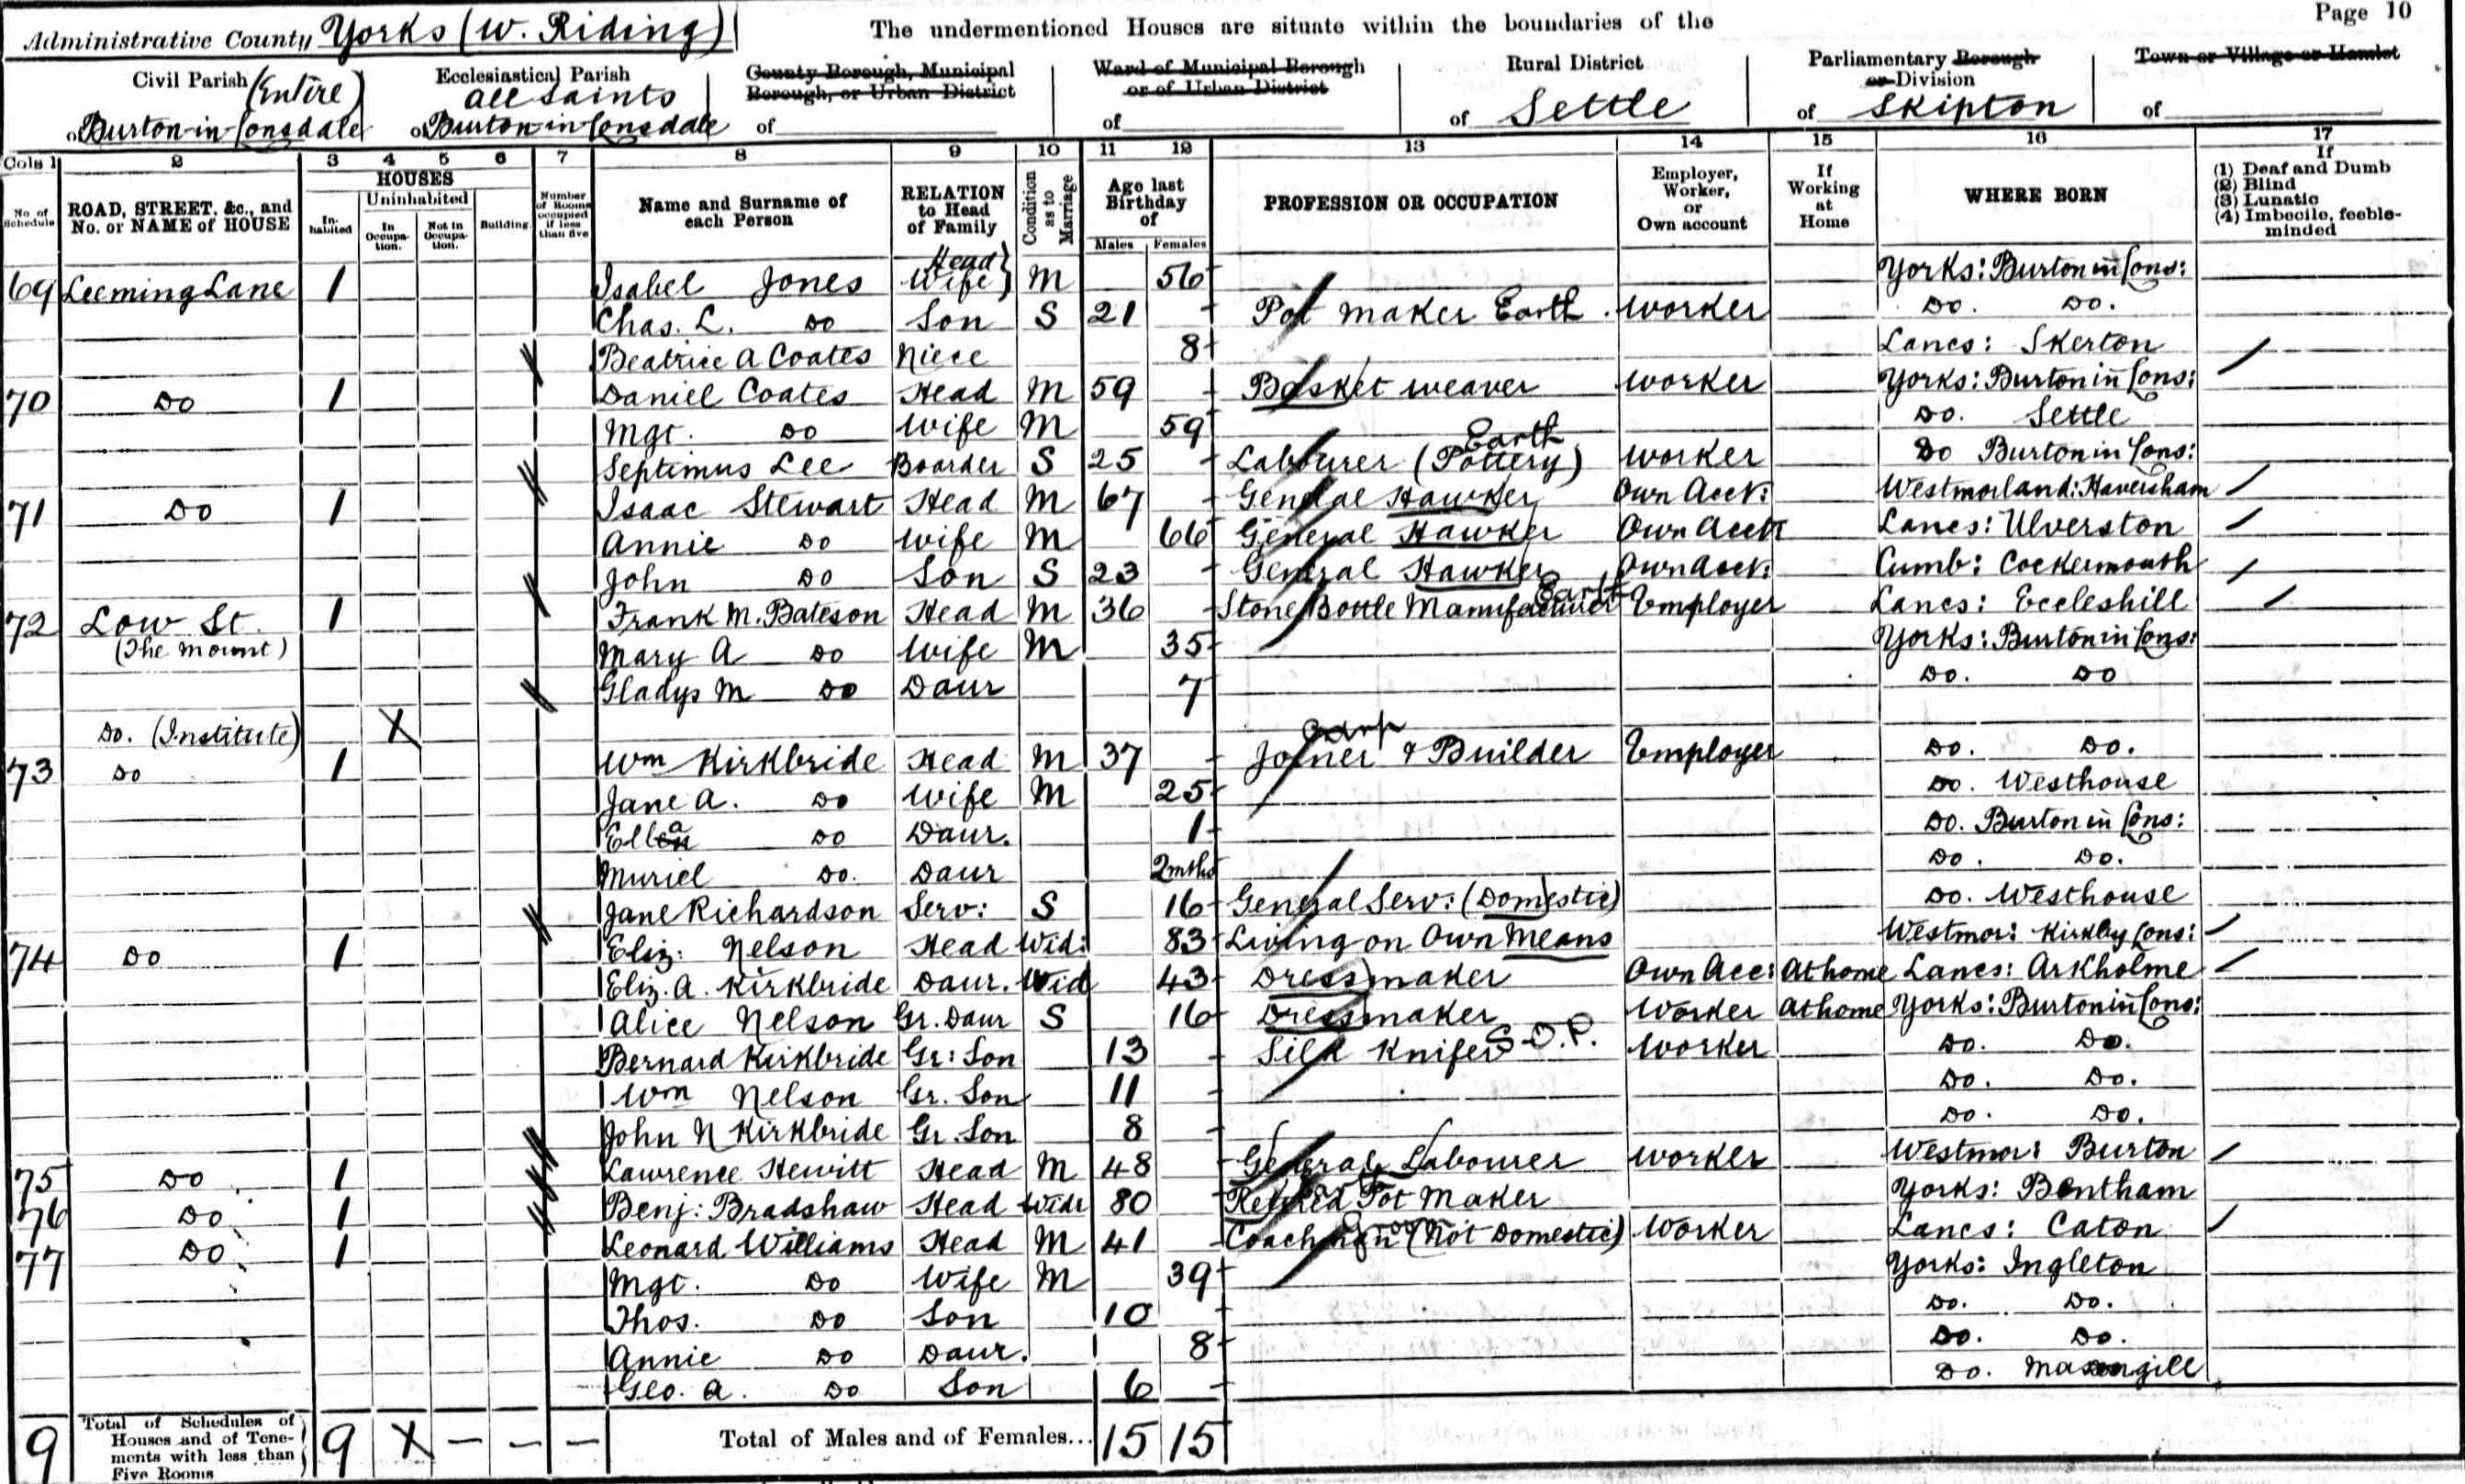 Administrative County Yorks (W. Riding) The undermentioned Houses are situate within the boundaries of the Page 10
Civil Parish (Entire) of Burton-in-Lonsdale
Ecclesiastical Parish All Saints of Burton in Lonsdale
County Borough, Municipal Borough, or Urban District of
Ward of Municipal Borough or of Urban District of
Rural District of Settle
Parliamentary Borough or Division of Skipton
Town or Village or Hamlet of
Cols 1 2 3 4 5 6 7 8 9 10 11 12 13 14 15 16 17
No. of Schedule
ROAD, STREET, &c., and No. or NAME of HOUSE
HOUSES
Inhabited
Uninhabited
In Occupation.
Not in Occupation.
Building
Number of Rooms occupied if less than five
Name and Surname of each Person
RELATION to Head of Family
Condition as to Marriage
Age last Birthday of
Males Females
PROFESSION OR OCCUPATION
Employer, Worker, or Own account
If Working at Home
WHERE BORN
If
(1) Deaf and Dumb
(2) Blind
(3) Lunatic
(4) Imbecile, feeble-minded
69 Leeming Lane 1 Isabel Jones Head Wife } M 56 Yorks: Burton in Lons:
Chas. L. Do Son S 21 Pot maker Earth. Worker Do. Do.
Beatrice A Coates Niece 8 Lancs: Skerton
70 Do 1 Daniel Coates Head M 59 Basket weaver Worker Yorks: Burton in Lons:
Mgt. Do Wife M 59 Do. Settle
Septimus Lee Boarder S 25 Labourer (Pottery) Earth Worker Do Burton in Lons:
71 Do 1 Isaac Stewart Head M 67 General Hawker Own Acct: Westmorland: Haversham
Annie Do Wife M 66 General Hawker Own Acct Lancs: Ulverston
John Do Son S 23 General Hawker Own Acct: Cumb: Cockermouth
72 Low St. (The Mount) 1 Frank M. Bateson Head M 36 Stone Bottle Manufacturer Earth Employer Lancs: Eccleshill
Mary A Do Wife M 35 Yorks: Burton in Lons:
Gladys M Do Daur 7 Do. Do
Do. (Institute) X
73 Do 1 Wm Kirkbride Head M 37 Joiner & Builder Carp Employer Do. Do.
Jane A. Do Wife M 25 Do. Westhouse
Ella Do Daur. 1 Do. Burton in Lons:
Muriel Do. Daur 2mths Do. Do.
Jane Richardson Serv: S 16 General Serv: (Domestic) Do. Westhouse
74 Do 1 Eliz: Nelson Head Wid: 83 Living on Own Means Westmor: Kirkby Lons:
Eliz. A. Kirkbride Daur. Wid 43 Dressmaker Own Acc: At home Lancs: Arkholme
Alice Nelson Gr. Daur S 16 Dressmaker Worker At home Yorks: Burton in Lons:
Bernard Kirkbride Gr: Son 13 Silk Knifer S.O.P. Worker Do. Do.
Wm Nelson Gr. Son 11 Do. Do.
John N Kirkbride Gr. Son 8 Do. Do.
75 Do 1 Lawrence Hewitt Head M 48 General Labourer Worker Westmor: Burton
76 Do 1 Benj: Bradshaw Head Widr 80 Retired Pot Maker Yorks: Bentham
77 Do 1 Leonard Williams Head M 41 Coachman (Not Domestic) Groom Worker Lancs: Caton
Mgt. Do Wife M 39 Yorks: Ingleton
Thos. Do Son 10 Do. Do.
Annie Do Daur. 8 Do. Do.
Geo. A. Do Son 6 Do. Masongill
9 Total of Schedules of Houses and of Tenements with less than Five Rooms 9 X – – – Total of Males and of Females... 15 15